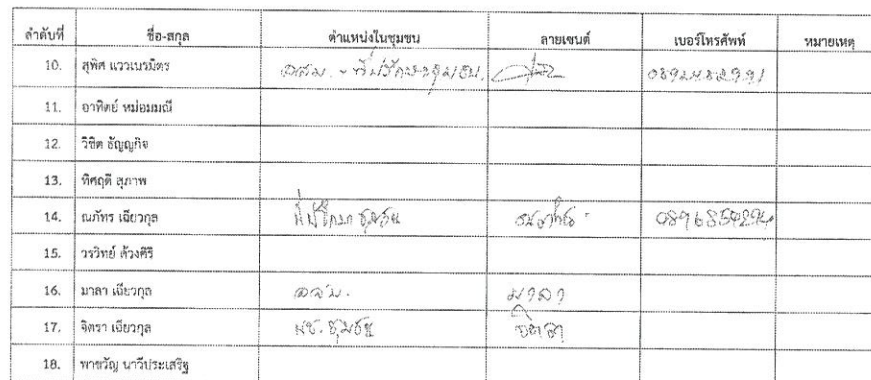 ลำดับที่ ชื่อ-สกุล ตำแหน่งในชุมชน ลายเซนต์ เบอร์โทรศัพท์ หมายเหตุ
10. สุพิศ แววเนรมิตร อสม. - ที่ปรึกษาชุมชน.
11. อาทิตย์ หม่อมมณี
12. วิชิต ธัญญกิจ
13. ทิศฤดี สุภาพ
14. ณภัทร เฉียวกุล ที่ปรึกษา ชุมชน
15. วรวิทย์ ด้วงศิริ
16. มาลา เฉียวกุล อสม. มาลา
17. จิตรา เฉียวกุล ชุมชน จิตรา
18. พาขวัญ นาวีประเสริฐ